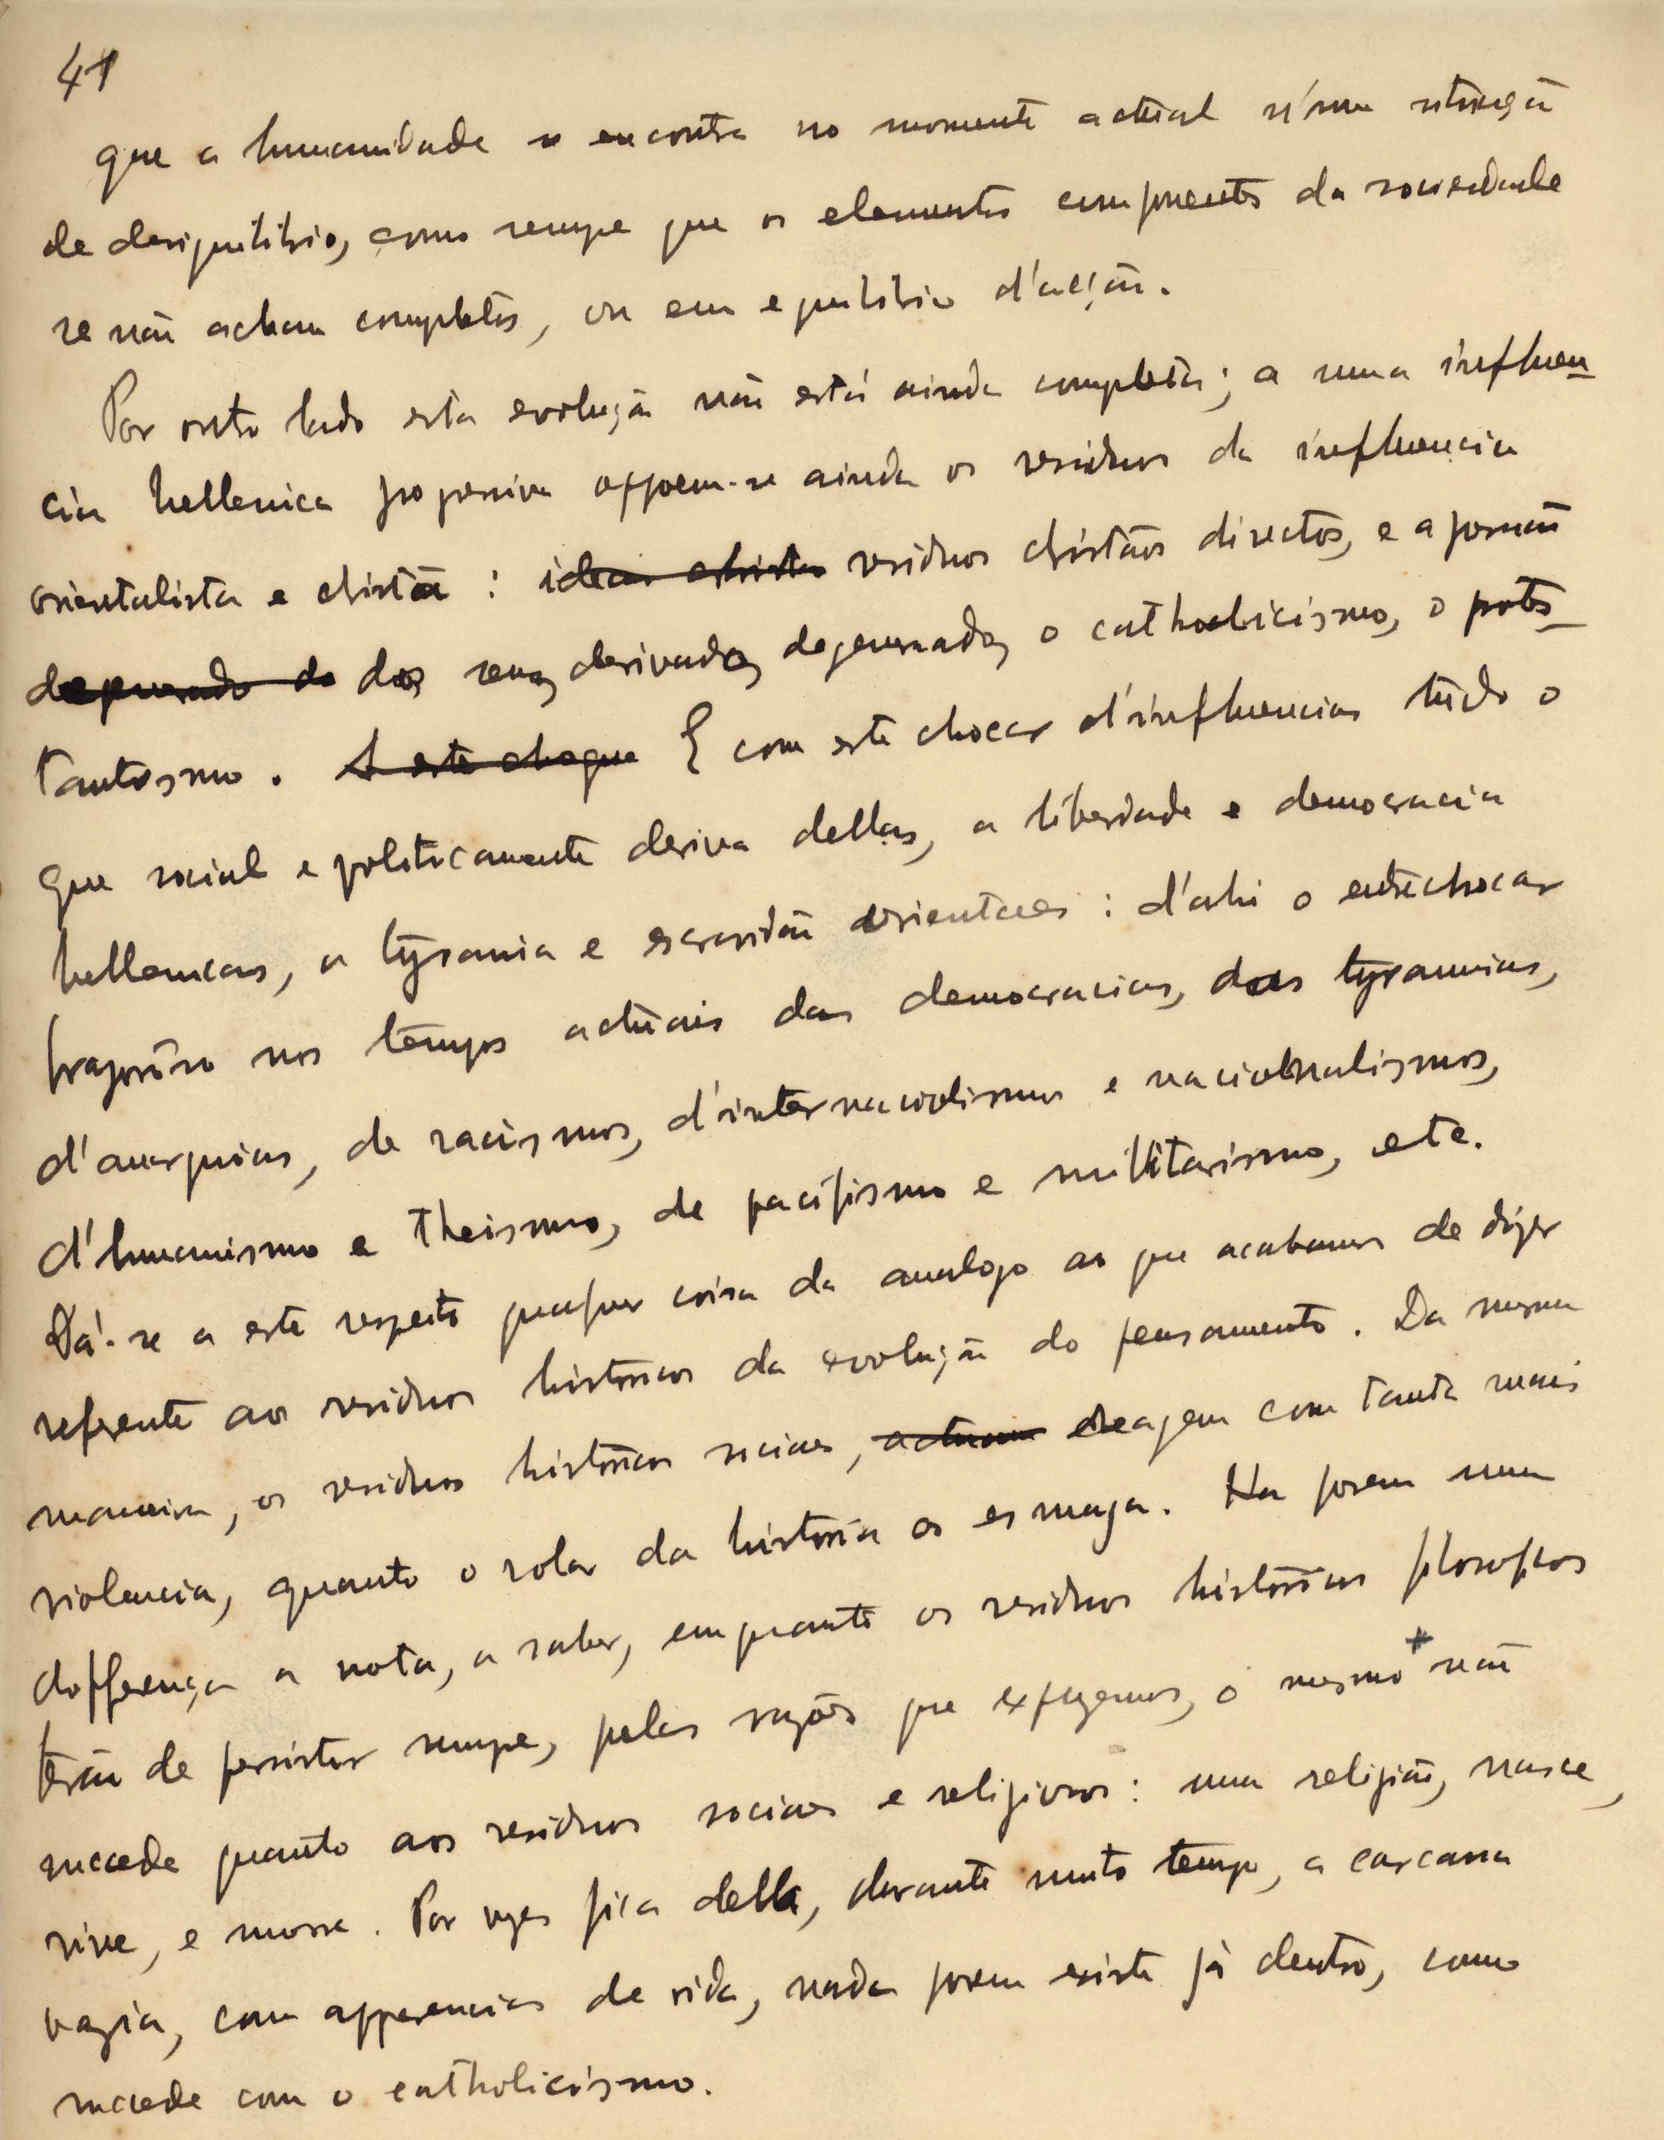 41
que a humanidade se encontra no momento actual n'uma situação
de desiquilibrio, como sempre que os elementos componentes da sociedade
se não acham completos, ou em equilibrio d'acção.
Por outro lado esta evolução não está ainda completa; a uma influen-
cia hellenica progressiva oppoem-se ainda os residuos da influencia
orientalista e christã : ideias christãs residuos christãos directos, e a pressão
degenerado do dos seus derivados degenerados, o catholicismo, o protes-
tantismo. A este choque E com este chocar d'influencias tudo o
que social e politicamente deriva dellas, a liberdade e democracia
hellenicas, a tyrania e escravidão orientaes : d'ahi o entrechocar
fragoroso nos tempos actuais das democracias, das tyrannias,
d'anarquias, de racismos, d'internaciolismos e nacionalismos,
d'humanismo e theismo, de pacifismo e militarismo, etc.
Dá-se a este respeito qualquer coisa da analogo ao que acabamos de dizer
referente aos residuos historicos da evolução do pensamento. Da mesma
maneira, os residuos historicos sociaes, actuam reagem com tanta mais
violencia, quanto o rolar da historia os esmaga. Ha porem uma
differença a notar, a saber, emquanto os residuos historicos filosoficos
terão de persistir sempre, pelas razões que expuzemos, o mesmo + não
succede quanto aos residuos sociaes e religiosos : uma religião, nasce,
vive, e morre. Por vezes fica della, durante muito tempo, a carcassa
vazia, com apparencias de vida, nada porem existe já dentro, como
succede com o catholicismo.